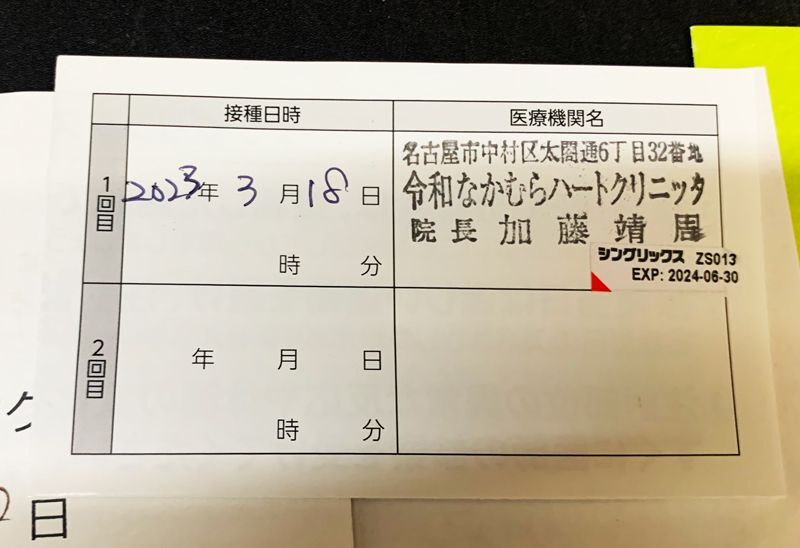 接種日時
医療機関名
1回目
2023年 3月18日
時 分
名古屋市中村区太閤通6丁目32番地
令和なかむらハートクリニック
院長 加藤靖周
シングリックス ZS013
EXP: 2024-06-30
2回目
年 月 日
時 分
日